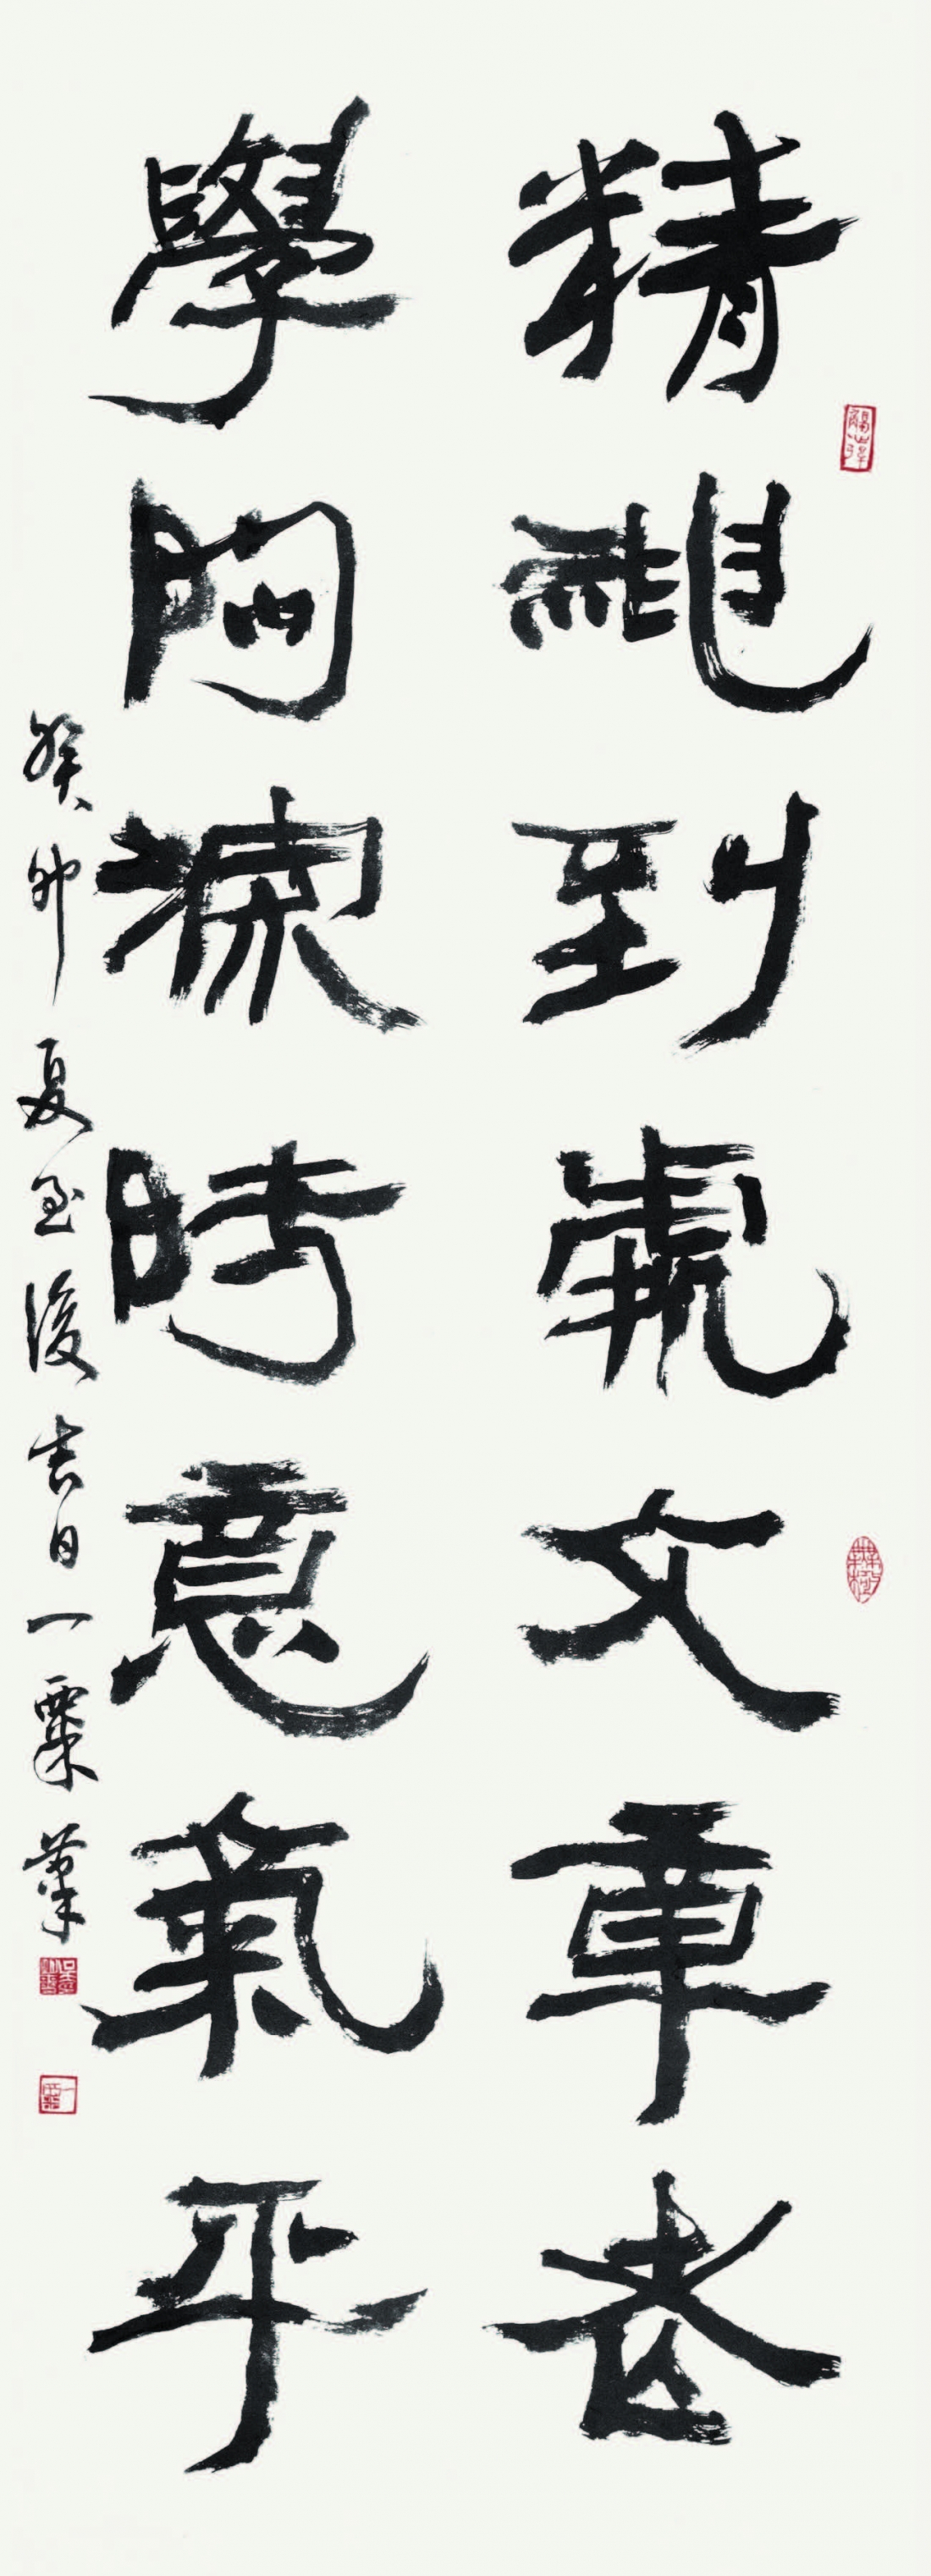 精神到處文章老
學問深時意氣平
癸卯夏至後吉日一粟筆
無極
一粟